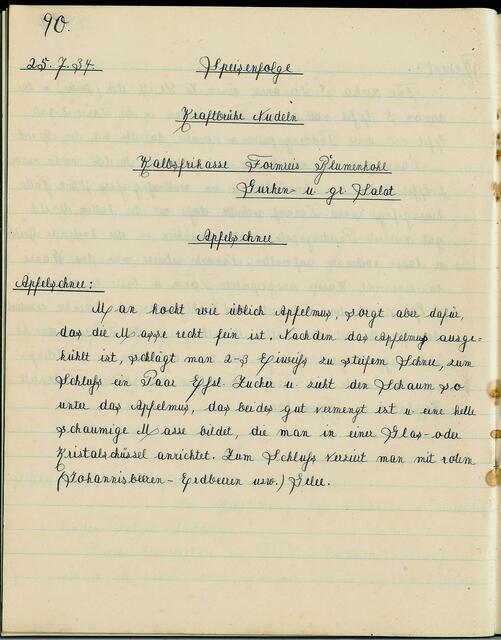 90.
25.7.34. Speisenfolge
Kraftbrühe Nudeln
Kalbsfrikasse Formreis Blumenkohl
Gurken- u. gr. Salat
Apfelschnee
Apfelschnee:
Man kocht wie üblich Apfelmus, sorgt aber dafür,
das die Masse recht fein ist. Nachden das Apfelmus ausge-
kühlt ist, schlägt man 2-3 Eiweiß zu steifem Schnee, zum
Schluß ein Paar Eßl. Zucker u. zieht den Schaum so
unter das Apfelmus, das beides gut vermengt ist u. eine helle
schaumige Masse bildet, die man in einer Glas- oder
Kristalschüssel anrichtet. Zum Schluß verziert man mit rotem
(Johannisbeeren- Erdbeeren usw.) Gelee.